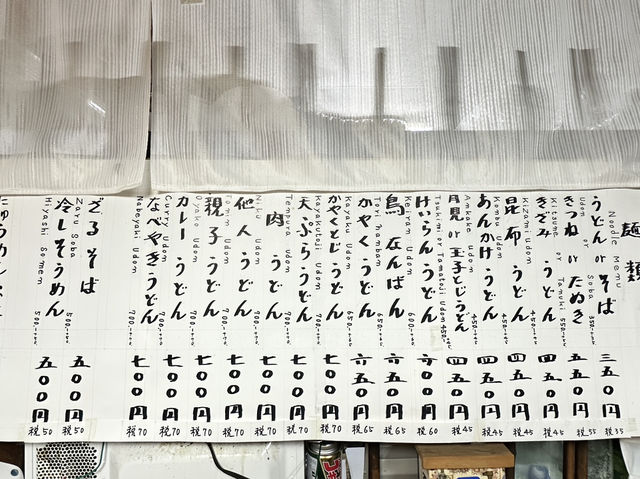 麺類
Noodle Menu
うどん or そば
Udon or Soba 350
三五〇円
税35
きつね or たぬき
Kitsune or Tanuki 550
五五〇円
税55
きざみうどん
Kizami Udom 450
四五〇円
税45
昆布うどん
Kombu Udom 450
四五〇円
税45
あんかけうどん
Ankake Udom 450
四五〇円
税45
月見 or 玉子とじうどん
Tsukimi or Tamatoji Udom 450
四五〇円
税45
けいらんうどん
Keiran Udom 600
六〇〇円
税60
鳥なんばん
Tori Nanban 650
六五〇円
税65
かやくうどん
Kayaku Udom 650
六五〇円
税65
かやくとじうどん
Kayakutoji Udom 700
七〇〇円
税70
天ぷらうどん
Tempura Udom 700
七〇〇円
税70
肉うどん
Niku Udom 700
七〇〇円
税70
他人うどん
Tanin Udom 700
七〇〇円
税70
親子うどん
Oyako Udom 700
七〇〇円
税70
カレーうどん
Curry Udom 700
七〇〇円
税70
なべやきうどん
Nabeyaki Udom 700
七〇〇円
税70
ざるそば
Zaru Soba 500
五〇〇円
税50
冷しそうめん
Hiyashi Somen 500
五〇〇円
税50